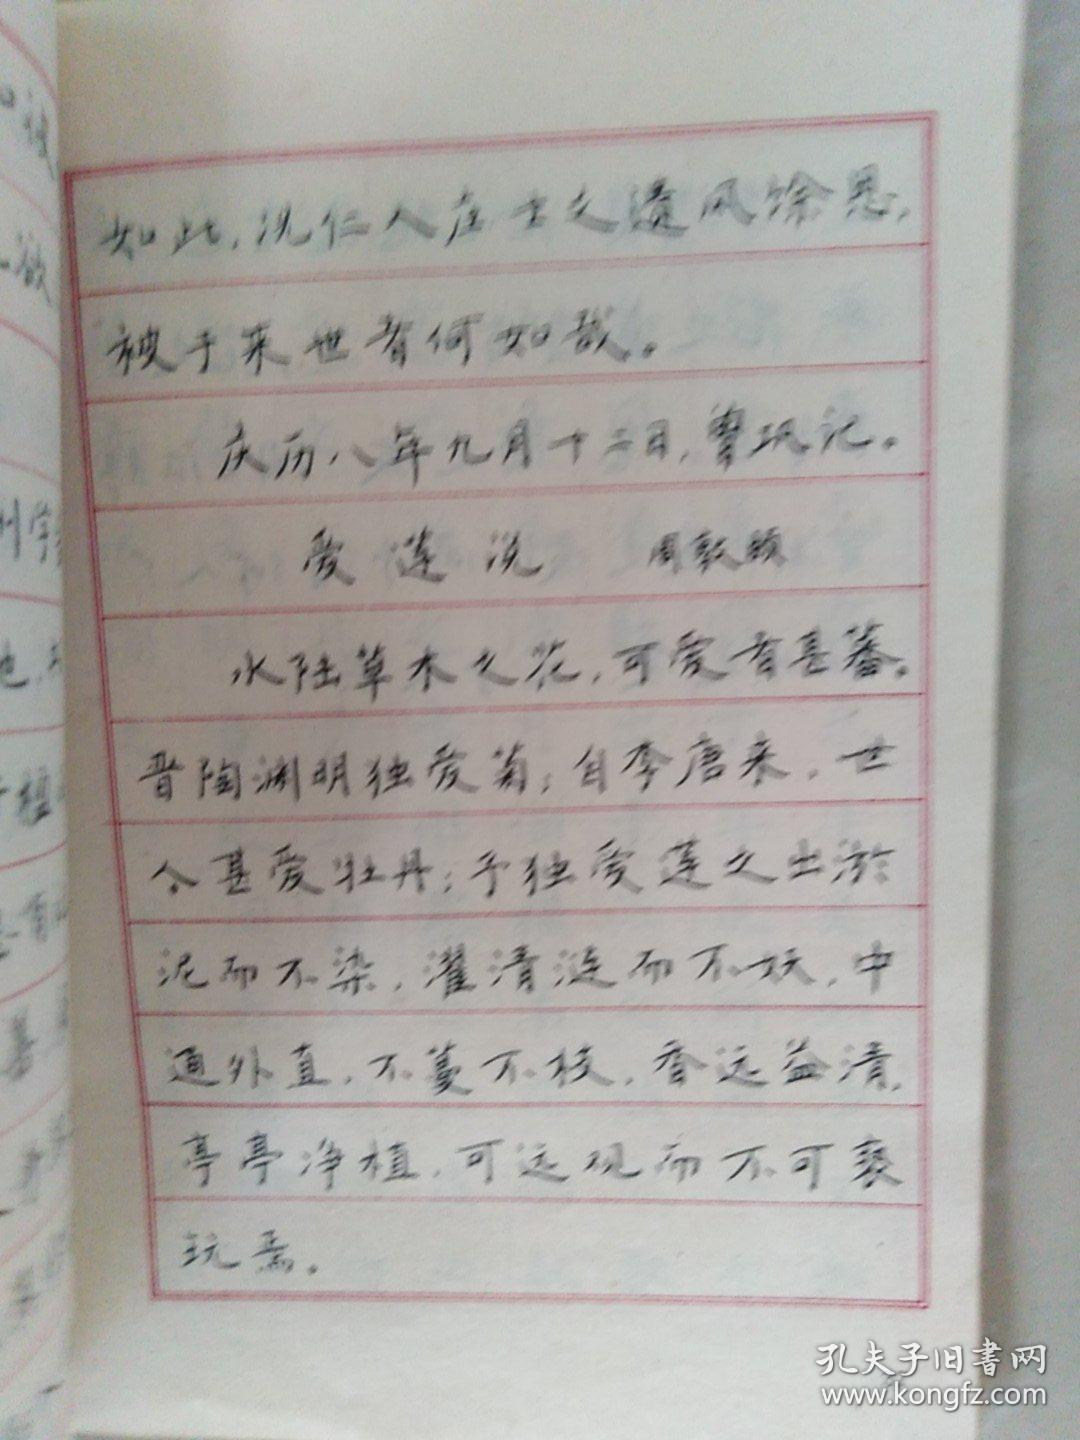 如此，况仁人庄士之遗风馀思，
被于来世者何如哉。
庆历八年九月十二日，曾巩记。
爱莲说 周敦颐
水陆草木之花，可爱者甚蕃。
晋陶渊明独爱菊；自李唐来，世
人甚爱牡丹；予独爱莲之出淤
泥而不染，濯清涟而不妖，中
通外直，不蔓不枝，香远益清，
亭亭净植，可远观而不可亵
玩焉。
孔夫子旧書网
www.kongfz.com